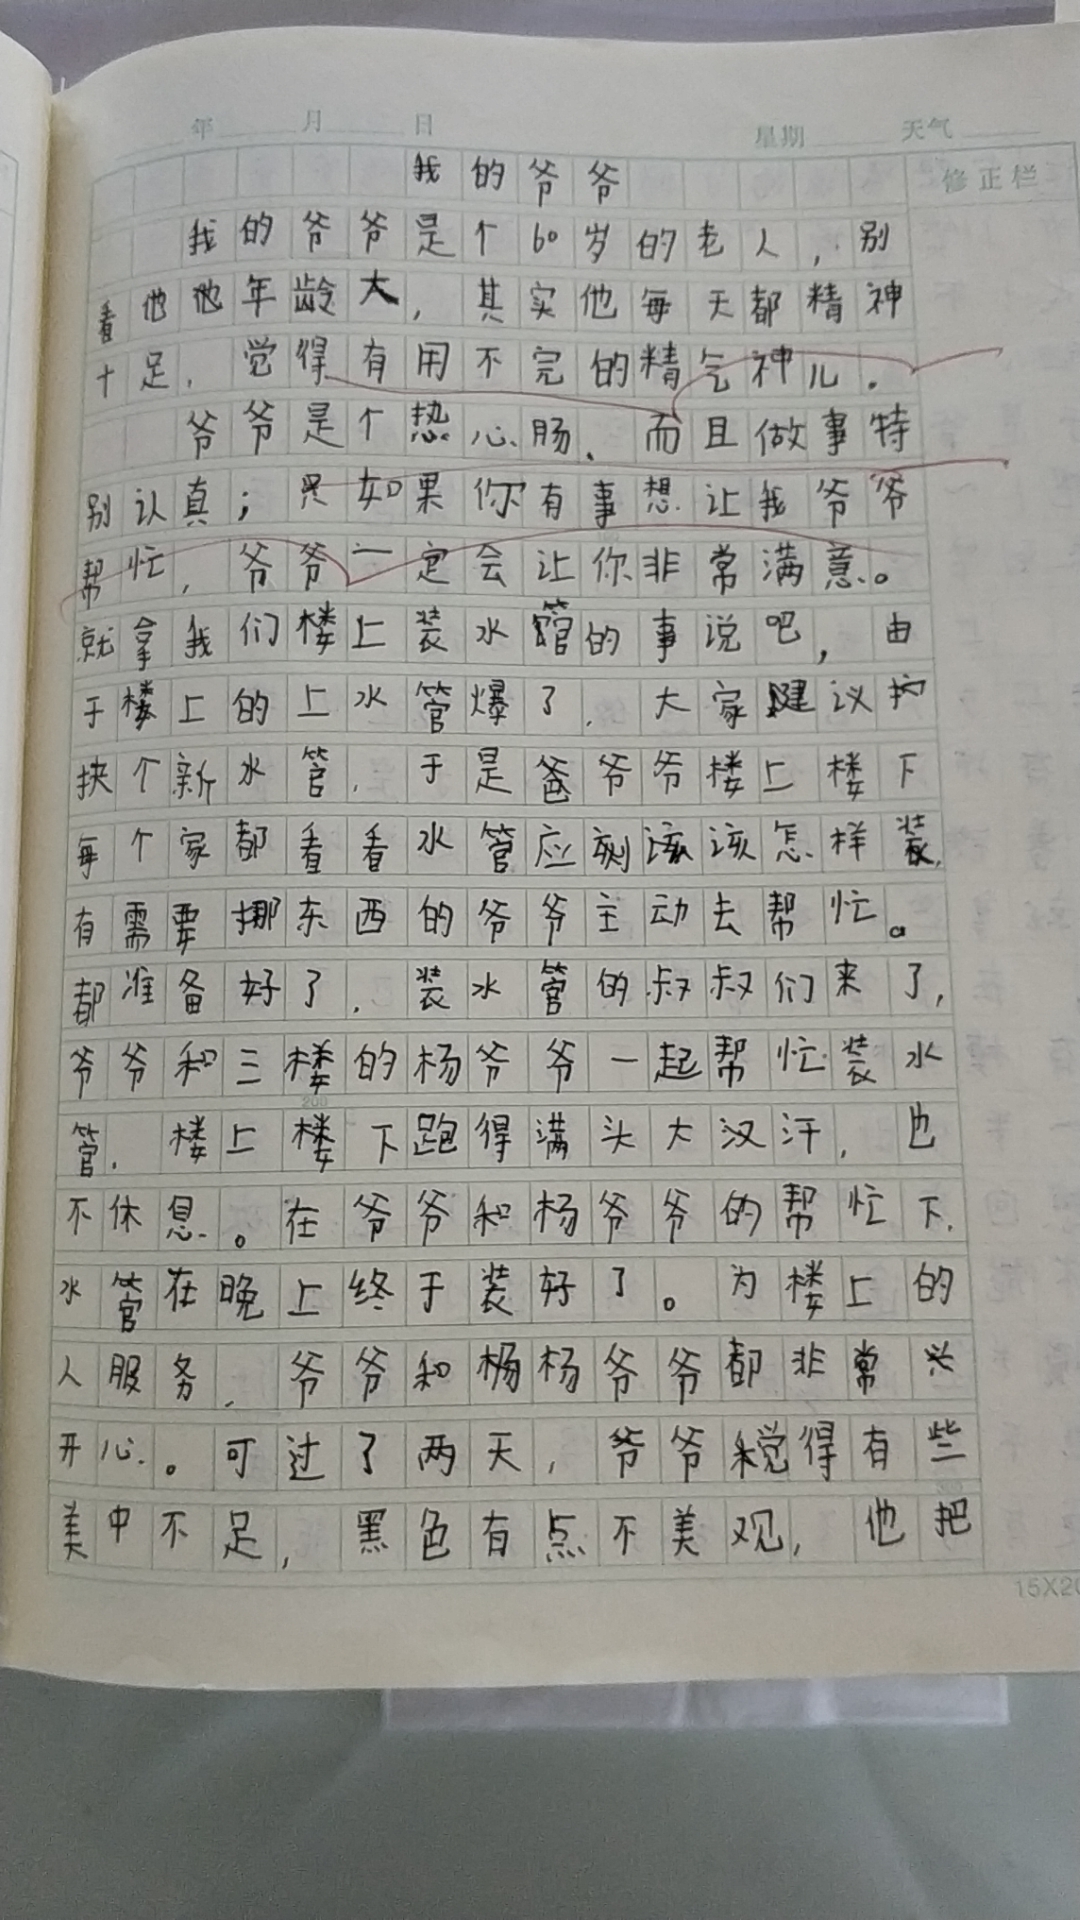 年 月 日 星期 天气
我的爷爷
修正栏
我的爷爷是个60岁的老人,别
看他他年龄大,其实他每天都精神
十足,觉得有用不完的精气神儿。
爷爷是个热心肠。而且做事特
别认真;只如果你有事想让我爷爷
帮忙,爷爷一定会让你非常满意。
就拿我们楼上装水管的事说吧,由
于楼上的上水管爆了,大家建议
个新水管,于是爷爷楼上楼下
每个家都看看水管应该该怎样装,
有需要挪东西的爷爷主动去帮忙。
都准备好了,装水管的叔叔们来了,
爷爷和三楼的杨爷爷一起帮忙装水
200
管,楼上楼下跑得满头大汉汗,也
不休息。在爷爷和杨爷爷的帮忙下,
水管在晚上终于装好了。为楼上的
人服务,爷爷和杨杨爷爷都非常
开心。可过了两天,爷爷觉得有些
美中不足,黑色有点不美观,他把
15X20